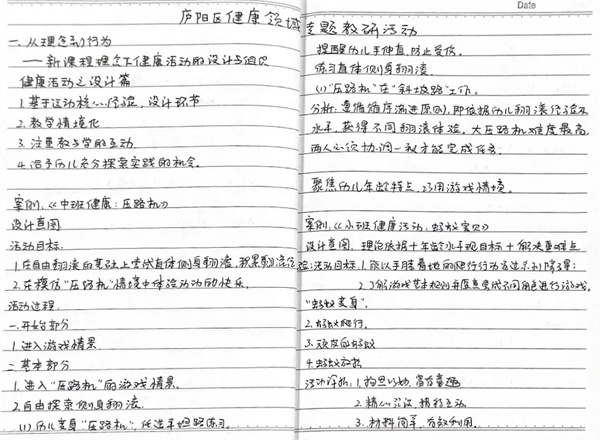 庐阳区健康领域专题教研活动
Date
一、从理念到行为
——新课程理念下健康活动的设计与组织
健康活动之设计篇
1.基于运动核心经验，设计环节
2.教学情境化
3.注重教与学的互动
4.给予幼儿充分探索实践的机会。
案例：《中班健康：压路机》
设计意图
活动目标：
1.在自由翻滚的基础上尝试直体侧身翻滚，积累翻滚经验；
2.在模仿“压路机”情境中体验运动的快乐。
活动过程：
一.开始部分
1.进入游戏情景
二.基本部分
1.进入“压路机”的游戏情景。
2.自由探索侧身翻滚.
(1)幼儿变身“压路机”，在平坦路练习.
提醒幼儿手伸直，防止受伤。
练习直体侧身翻滚.
(1)“压路机”在“斜坡路”工作。
分析：遵循循序渐进原则，即依据幼儿翻滚经验及
水平，获得不同翻滚体验。大压路机难度最高，
两人必须协调一致才能完成任务.
聚焦幼儿年龄特点，巧用游戏情境。
案例：《小班健康活动：蚂蚁宝贝》
设计意图：理论依据+年龄水平现目标+解决重难点
活动目标：1.能以手膝着地的爬行
2.了解游戏基本规则并愿意尝试不同角色进行游戏。
“蚂蚁变身”.
2.蚂蚁爬行.
3.顽皮的蚂蚁
4.蚂蚁放松
活动评析：1.构思巧妙，富有童趣
2.精心 精彩互动.
3.材料简单，有效利用.